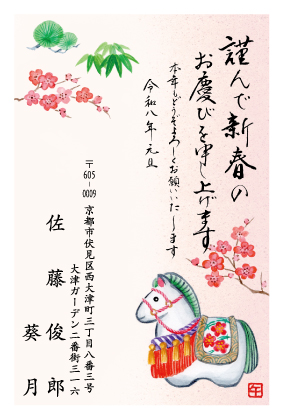 謹んで新春の
お慶びを申し上げます
本年もどうぞよろしくお願いいたします
令和八年 元旦
〒605-0009
京都市伏見区西大津町三丁目八番三号
大津ガーデン二番街三一六
佐藤俊郎
葵月
午